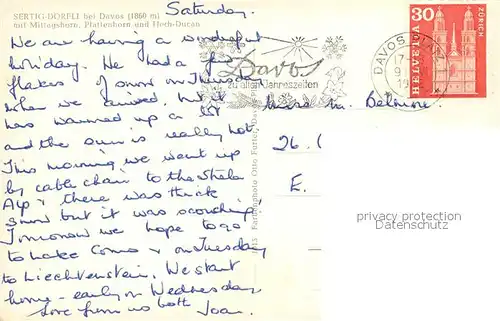 SERTIG-DÖRFLI bei Davos (1860 m)
mit Mittagshorn, Plattenhorn und Hoch-Ducan
Saturday.
We are having a wonderful
holiday. We had a few
flakes of snow on Thursday
when we arrived, but it
has warmed up a lot
and the sun is really hot.
This morning we went up
by cable chair to the Shela
Alp & there was thick
snow but it was scorching.
Tomorrow we hope to go
to Lake Como & on Tuesday
to Liechtenstein. We start
home early on Wednesday
Love from us both
Joan.
Farbenphoto Otto Furter, Davos
Davos
zu allen Jahreszeiten
DAVOS PLATZ
HELVETIA
30
ZÜRICH
Belmore.
26.
E.
privacy protection
Datenschutz